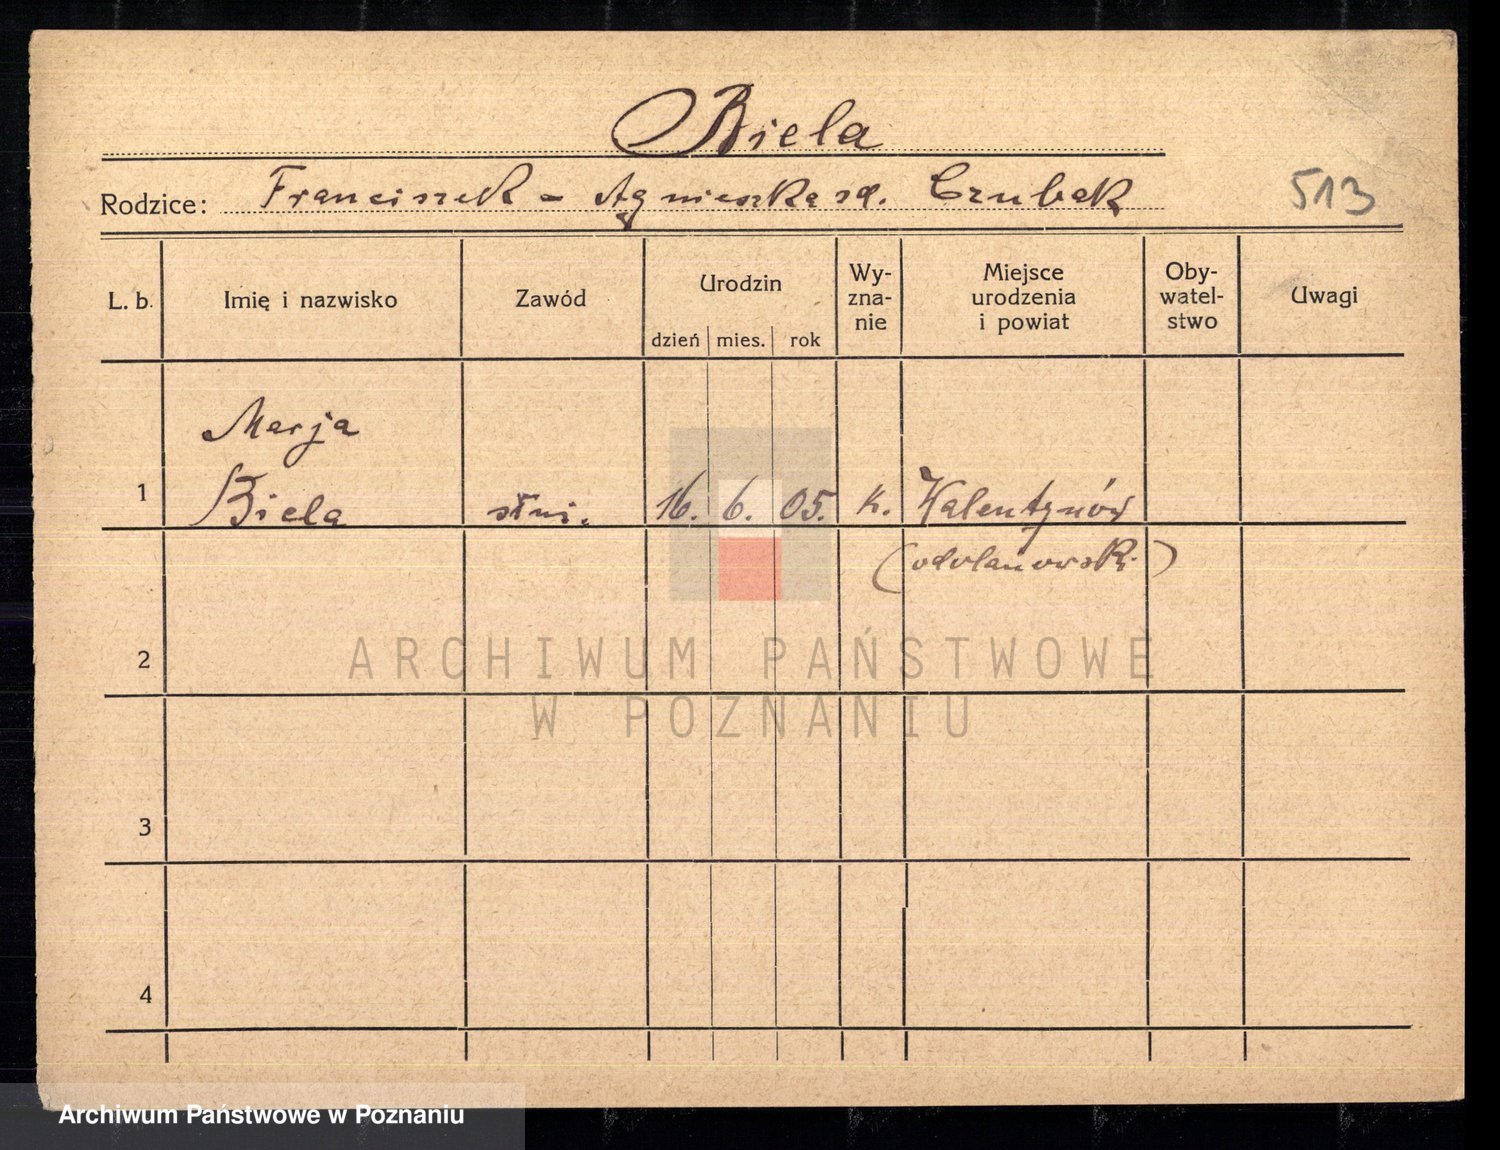 Biela
Rodzice: Franciszek - Agnieszka zd. Czubak 513
L. b. Imię i nazwisko Zawód Urodzin dzień mies. rok Wy-zna-nie Miejsce urodzenia i powiat Oby-watel-stwo Uwagi
Marja
1 Biela służ. 16. 6. 05. k. Walentynów
(odolanowski)
2
ARCHIWUM PAŃSTWOWE
W POZNANIU
3
4
Archiwum Państwowe w Poznaniu